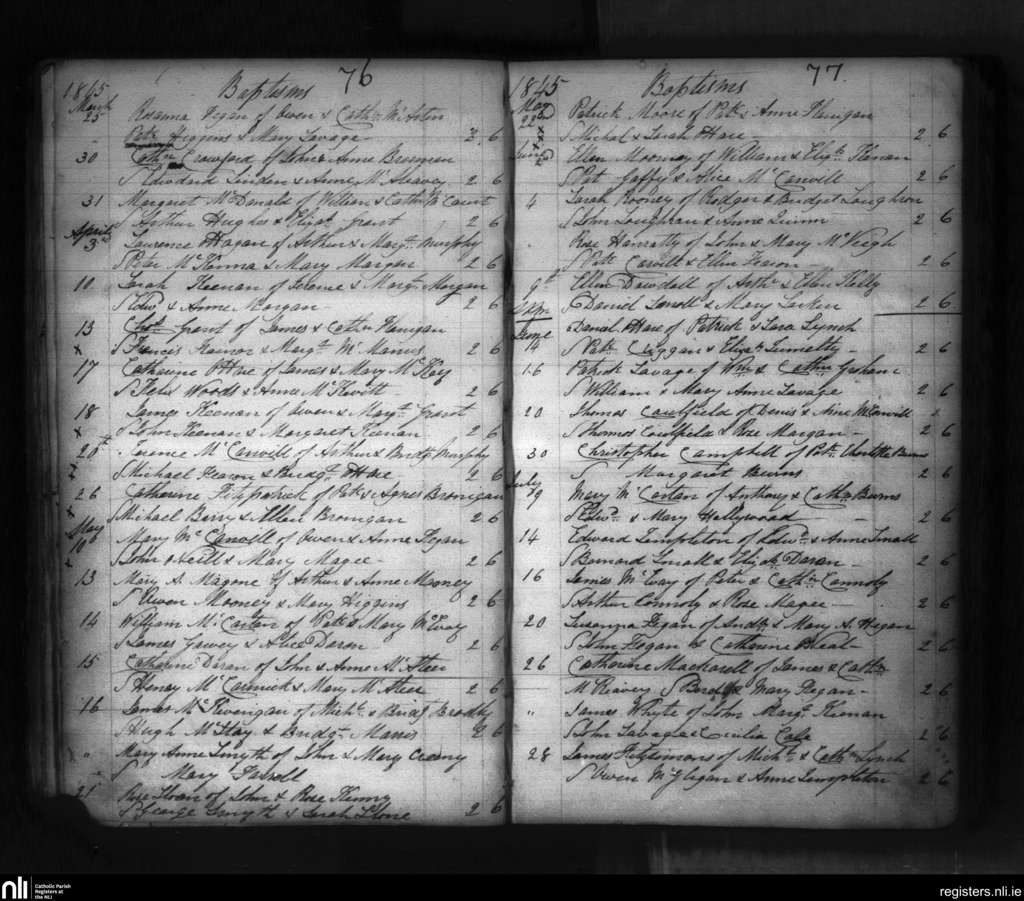 76
1845 Baptisms
March
25 Rosanna Fegan of Owen & Cathn McArten
Patk Higgins & Mary Savage 2 6
30 Cathn Crawford of John & Anne Brennen
S Edward Linden & Anne McAleavey 2 6
31 Margaret McDonald of William & Cathn McCourt
S Arthur Hughs & Elizath Grant 2 6
April
3rd Laurence Hagan of Arthur & Margt Murphy
S Peter McKenna & Mary Morgan 2 6
10 Sarah Keenan of Terence & Margt Morgan
S Edwd & Anne Morgan 2 6
13 Grant of James & Cathn Flanigan
x S Francis & Margt McManus 2 6
17 Catharine OHare of James & Mary McKay
S Felix Woods & Anne McKevitt 2 6
18 James Keenan of Owen & Margt Grant
x S John Keenan & Margaret Keenan 2 6
20th Terence McConvill of Arthur & Bridgt Murphy
x S Michael Fearon & Bridgt OHare 2 6
26 Catharine Fitzpatrick of Patk & Agnes Bronigan
x S Michael Berry & Ellen Bronigan 2 6
May
10 Mary McConvill of Owen & Anne Fegan
x S John ONeill & Mary Magee 2 6
13 Mary A. Magone of Arthur & Anne Mooney
S Owen Mooney & Mary Higgins 2 6
14 William McCartan of Patk & Mary McEvoy
S James Garvey & Alice Doran 2 6
15 Catharine Doran of John & Anne McAteer
S Henry McCormick & Mary McAteer 2 6
16 James McKevigan of Michl & Bridgt Brodly
S Hugh McKay & Bridgt Mavis 2 6
" Mary Anne Smyth of John & Mary Creany
S Mary Farrell
21 Rose Sloan of John & Rose Kenny
S George Smyth & Sarah Stone 2 6
77
1845 Baptisms
May
22nd Patrick Moore of Patk & Anne Flanigan
xx S Michal & Sarah Hare 2 6
June
2d Ellen Mooney of William & Elizth Kenan
S Pat Jaffy & Alice McConvill 2 6
4 Sarah Rooney of Rodger & Bridget Loughran
S John Loughran & Anne Quinn 2 6
Rose Hanratty of John & Mary McVeigh
S Patk Carvill & Ellen Fearon 2 6
9th Ellen Dowdall of Arthr & Ellen Kelly
S Daniel & Mary Larkin 2 6
June
14 Daniel OHare of Patrick & Sara Lynch
S Patk Criggan & Elizath 2 6
16 Patrick Savage of Wm & Cathn Graham
S William & Mary Anne Savage 2 6
20 Thomas Caulfield of Denis & Anne McConvill
S Thomas Caulfield & Rose Morgan 2 6
30 Christopher Campbell of Patk Charlotte Burns
S Margaret Burns 2 6
July
9 Mary McCartan of Anthony & Cathn Burns
S Edwd & Mary Hollywood 2 6
14 Edward Templeton of Edwd & Anne Small
S Bernard Small & Elizath Doran 2 6
16 James McEvoy of Peter & Cathn Connoly
S Arthur Connoly & Rose Magee 2 6
20 Susanna Fegan of Andw & Mary A. Hegan
S John Fegan & Catharine Wheat 2 6
26 Catharine Mackarell of James & Cathn
McReavey S Bernd & Mary Fegan 2 6
" James Whyte of John Margt Kernan
S John Savage & Cecilia 2 6
28 James Fitzsimons of Michl & Cathn Lynch
S Owen McGligan & Anne Templeton 2 6
nli Catholic Parish
Registers at
the NLI
registers.nli.ie